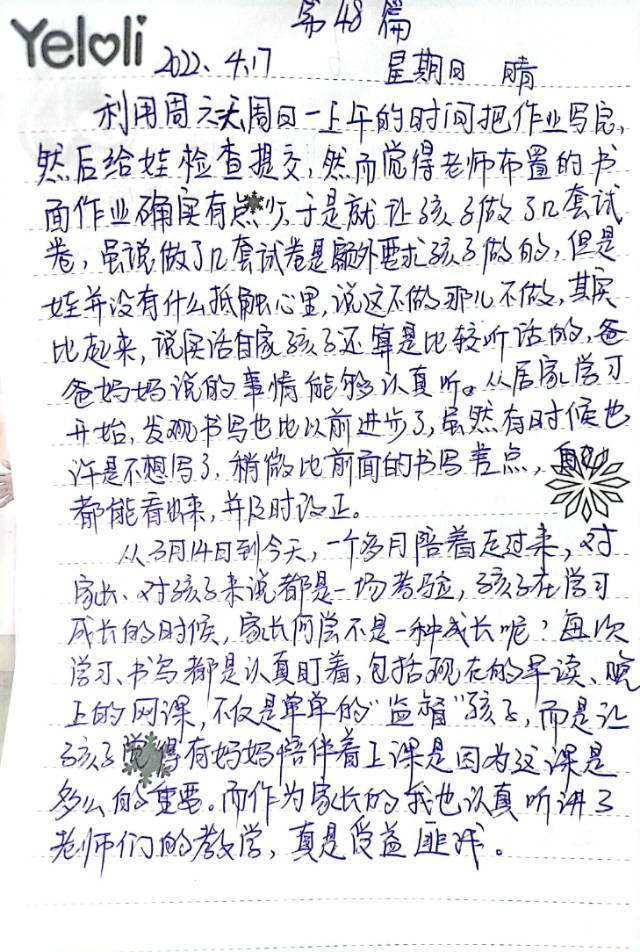 第48篇
Yeloli
2022.4.17 星期日 晴
利用周六天周日一上午的时间把作业写完,
然后给娃检查提交,然而觉得老师布置的书
面作业确实有点少,于是就让孩子做了几套试
卷,虽说做了几套试卷是额外要求孩子做的,但是
娃并没有什么抵触心里,说这不做那儿不做,其实
比起来,说实话自家孩子还算是比较听话的,爸
爸妈妈说的事情能够认真听。从居家学习
开始,发现书写也比以前进步了,虽然有时候也
许是不想写了,稍微比前面的书写差点,
都能看出来,并及时改正。
从3月14日到今天,一个多月陪着走过来,对
家长、对孩子来说都是一场考验,孩子在学习
成长的时候,家长何尝不是一种成长呢?每次
学习、书写都是认真盯着,包括现在的早读、晚
上的网课,不仅是单单的“监督”孩子,而是让
孩子觉得有妈妈陪伴着上课是因为这课是
多么的重要。而作为家长的我也认真听讲了
老师们的教学,真是受益匪浅。